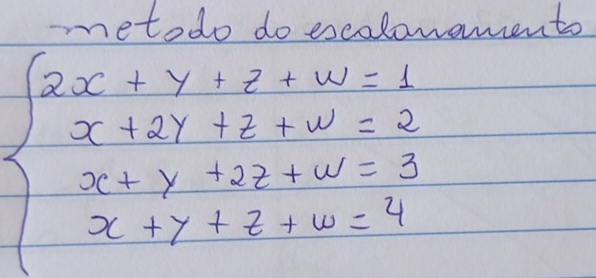 metodo do escalonamento
2x + y + z + w = 1
x + 2y + z + w = 2
x + y + 2z + w = 3
x + y + z + w = 4